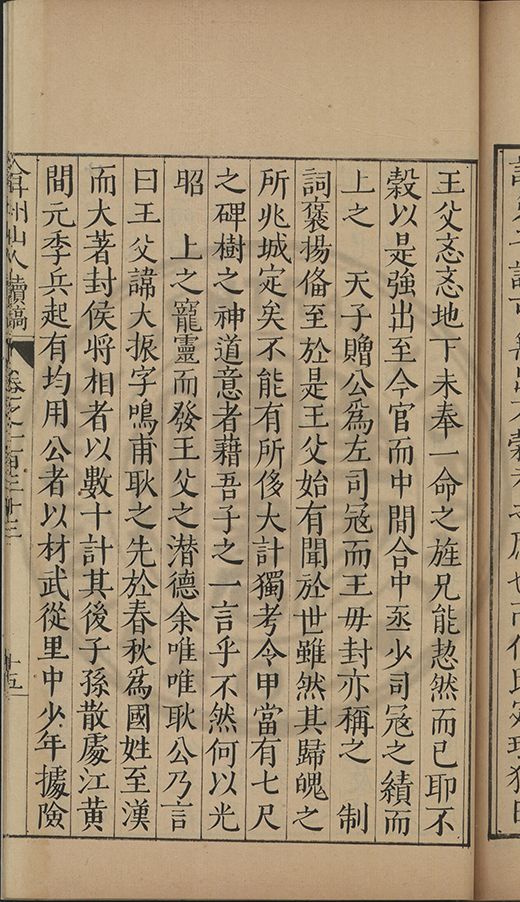 王父忞忞地下未奉一命之旌兄能恝然而已耶不
穀以是強出至今官而中間合中丞少司冦之績而
上之　天子贈公爲左司冦而王毋封亦稱之　制
詞襃揚俻至於是王父始有聞於世雖然其歸魄之
所兆城定矣不能有所侈大計獨考令甲當有七尺
之碑樹之神道意者藉吾子之一言乎不然何以光
昭　上之寵靈而發王父之潜德余唯唯耿公乃言
曰王父諱大振字鳴甫耿之先於春秋爲國姓至漢
而大著封侯将相者以數十計其後子孫散處江黄
間元季兵起有均用公者以材武從里中少年據險
弇州山人續稿　卷之一百三十三　十五